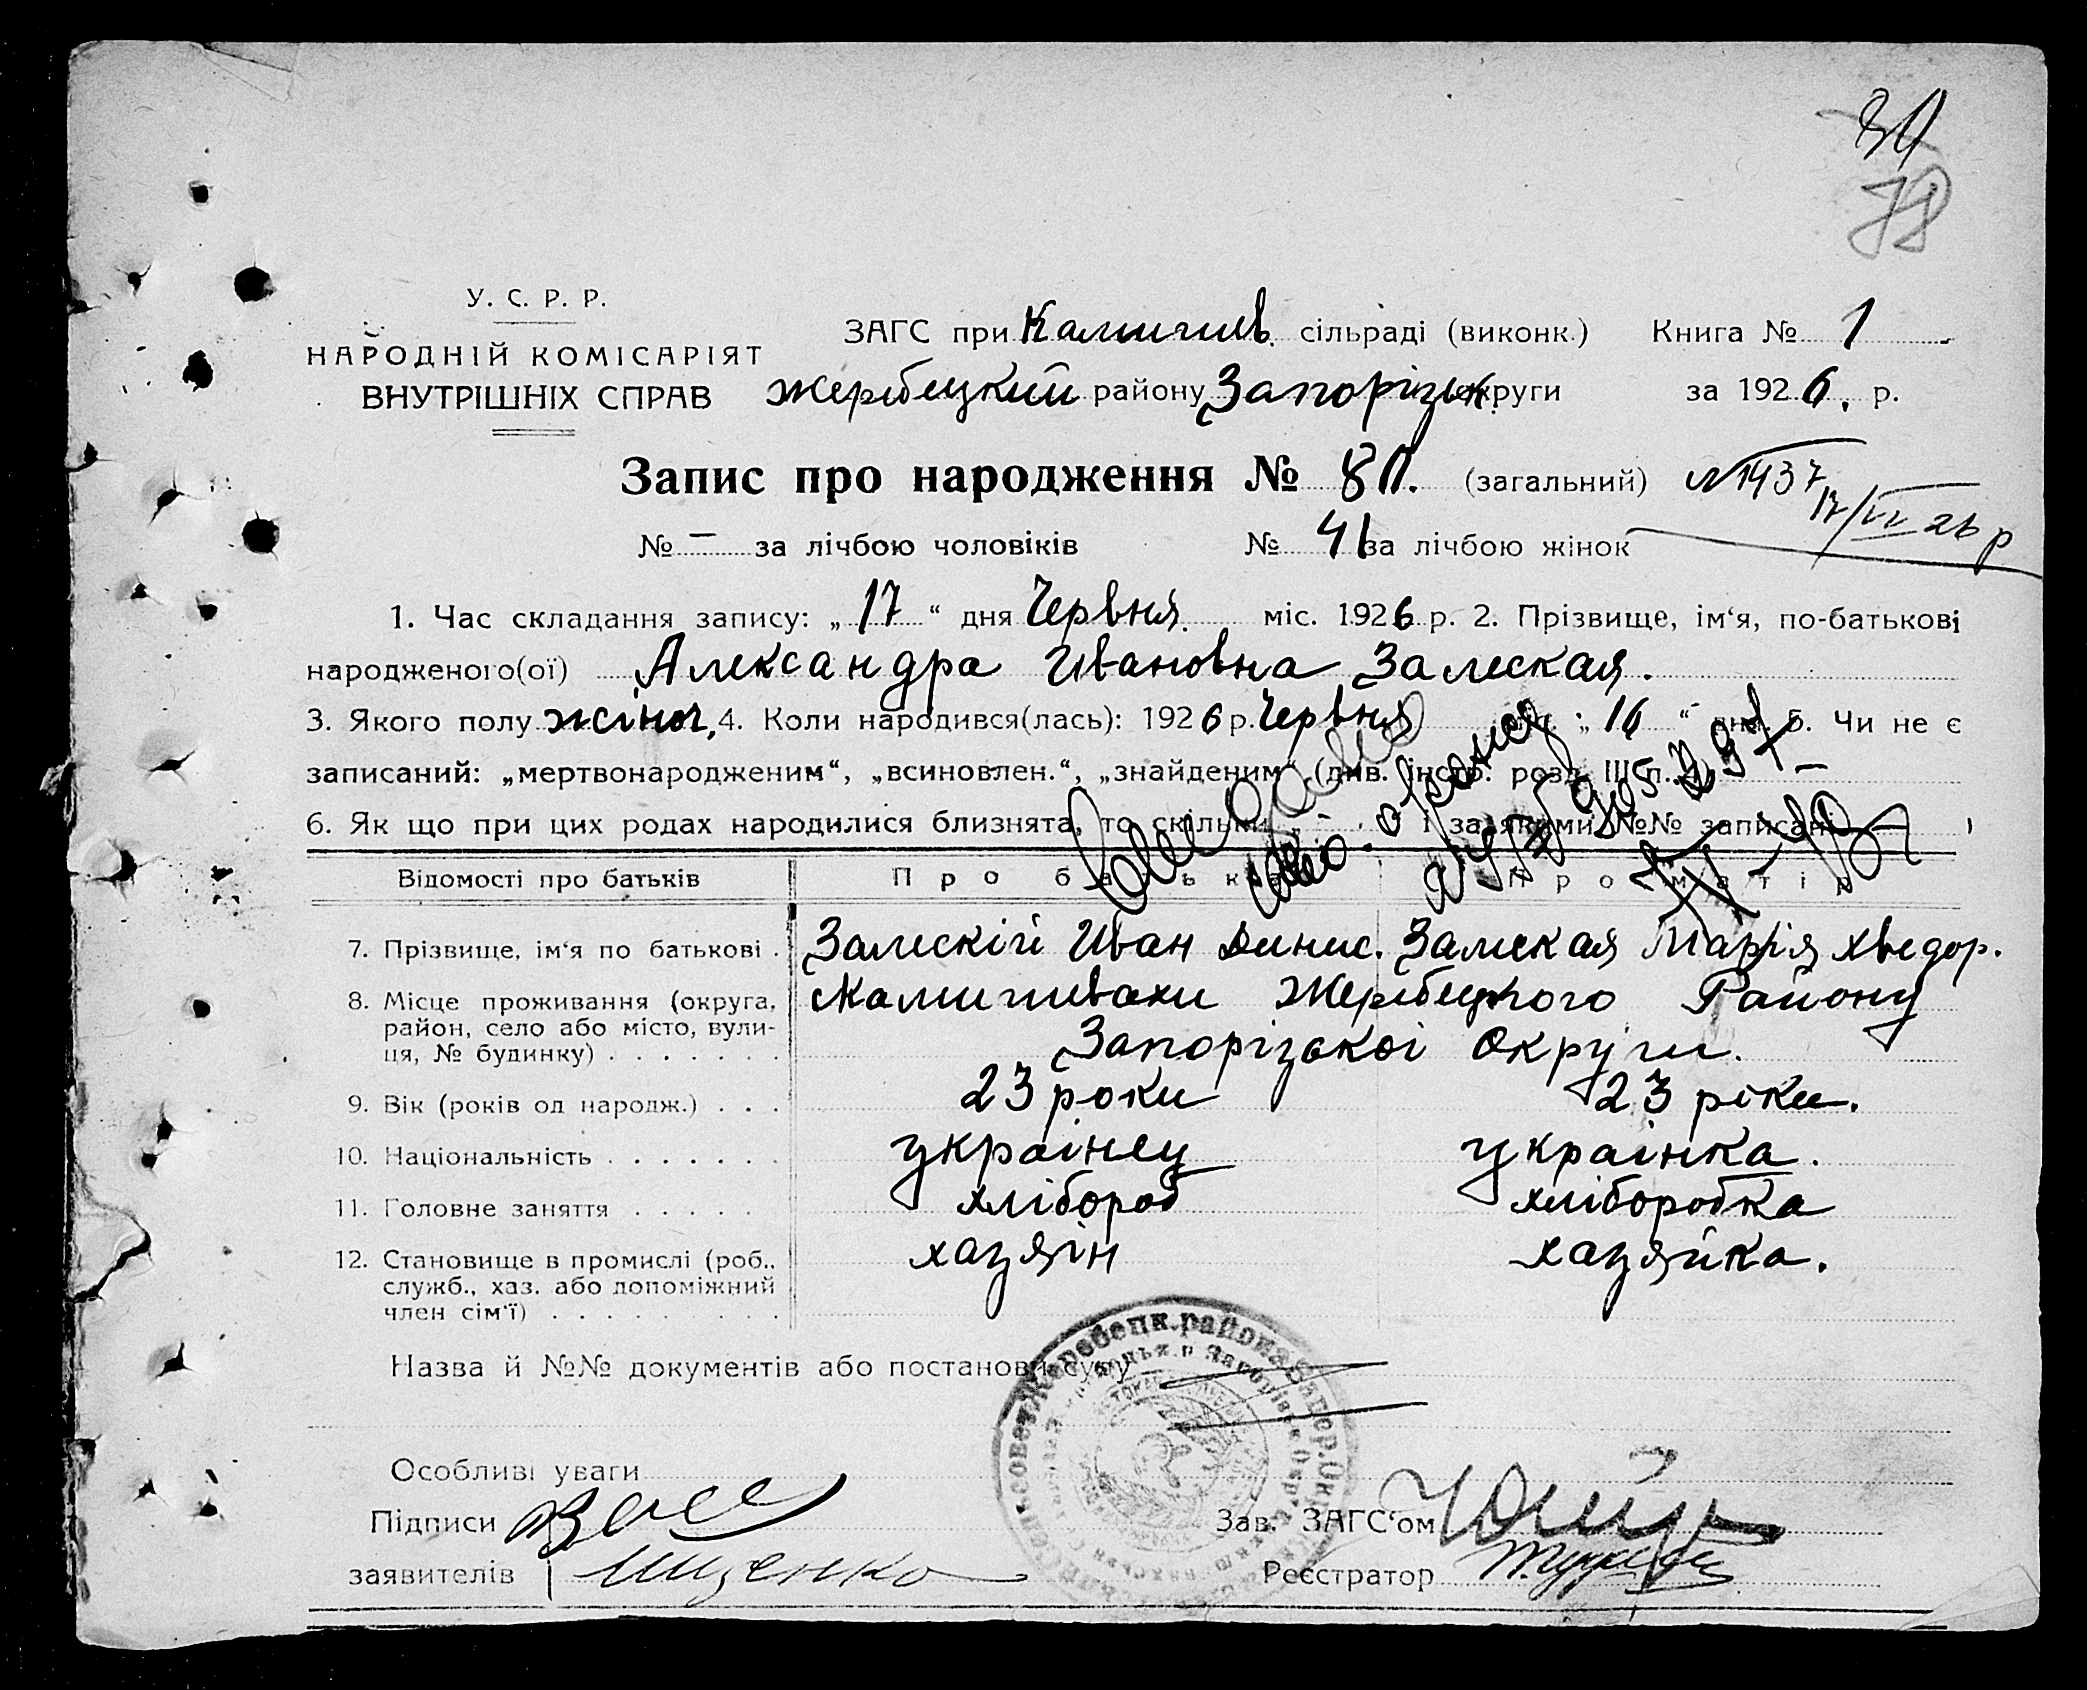 80
78
У. С. Р. Р.
НАРОДНІЙ КОМІСАРІЯТ
ВНУТРІШНІХ СПРАВ
ЗАГС при Камишев. сільраді (виконк.) Книга № 1
Жеребецкий району Запорізьк. округи за 1926. р.
Запис про народження № 80. (загальний) №1437
№ — за лічбою чоловіків № 41 за лічбою жінок
1. Час складання запису: „17“ дня Червня. міс. 1926 р. 2. Прізвище, ім‘я, по-батькові
народженого(ої) Александра Ивановна Залеская.
3. Якого полу жіноч, 4. Коли народився(лась): 1926 р. Червня „16“ дня. 5. Чи не є
записаний: „мертвонародженим“, „всиновлен.“, „знайденим“ (див. інстр. розд. III п. —
6. Як що при цих родах народилися близнята, то скільки „-“ і за якими №№ записані —
Відомості про батьків Про батька Про матір
7. Прізвище, ім‘я по батькові . Залескій Иван Динис. Залеская Марія Хведор.
8. Місце проживання (округа, район, село або місто, вулиця, № будинку) . . . . . . . Камишевахи Жеребецкого Району
Запорізькоі Округи.
9. Вік (років од народж.) . . . 23 роки 23 роки.
10. Національність . . . . . . . украінец украінка.
11. Головне заняття . . . . . хлібороб хлібoробка
12. Становище в промислі (роб., служб., хаз. або допоміжний член сім‘ї) . . . . . . . . . хазяін хазяйка.
Назва й №№ документів або постанови суду
Особливі уваги
Підписи
заявителів Ищенко
Зав. ЗАГС‘ом
Реєстратор